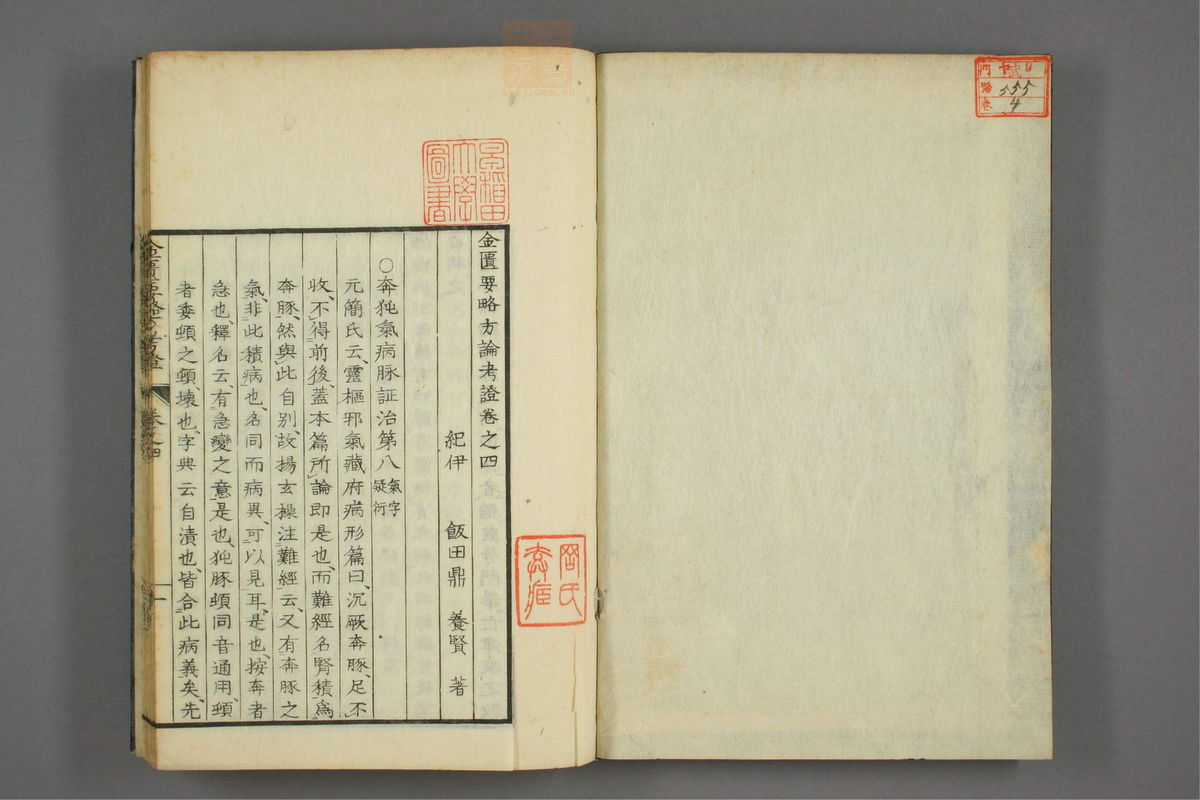 金匱要略方論考證卷之四
紀伊 飯田鼎 養賢 著
○奔㹠氣病脉証治第八 氣字疑衍
元簡氏云、靈樞邪氣藏府病形篇曰、沉厥奔豚、足不
收、不得前後、蓋本篇所論即是也、而難經名腎積爲
奔豚、然與此自別、故揚玄操注難經云、又有奔豚之
氣、非此積病也、名同而病異、可以見耳、是也、按奔者
急也、釋名云、有急變之意、是也、㹠豚頓同音通用、頓
者委頓之頓、壞也、字典云自漬也、皆合此病義矣、先
早稻田大學圖書
555
4
卷之四
一